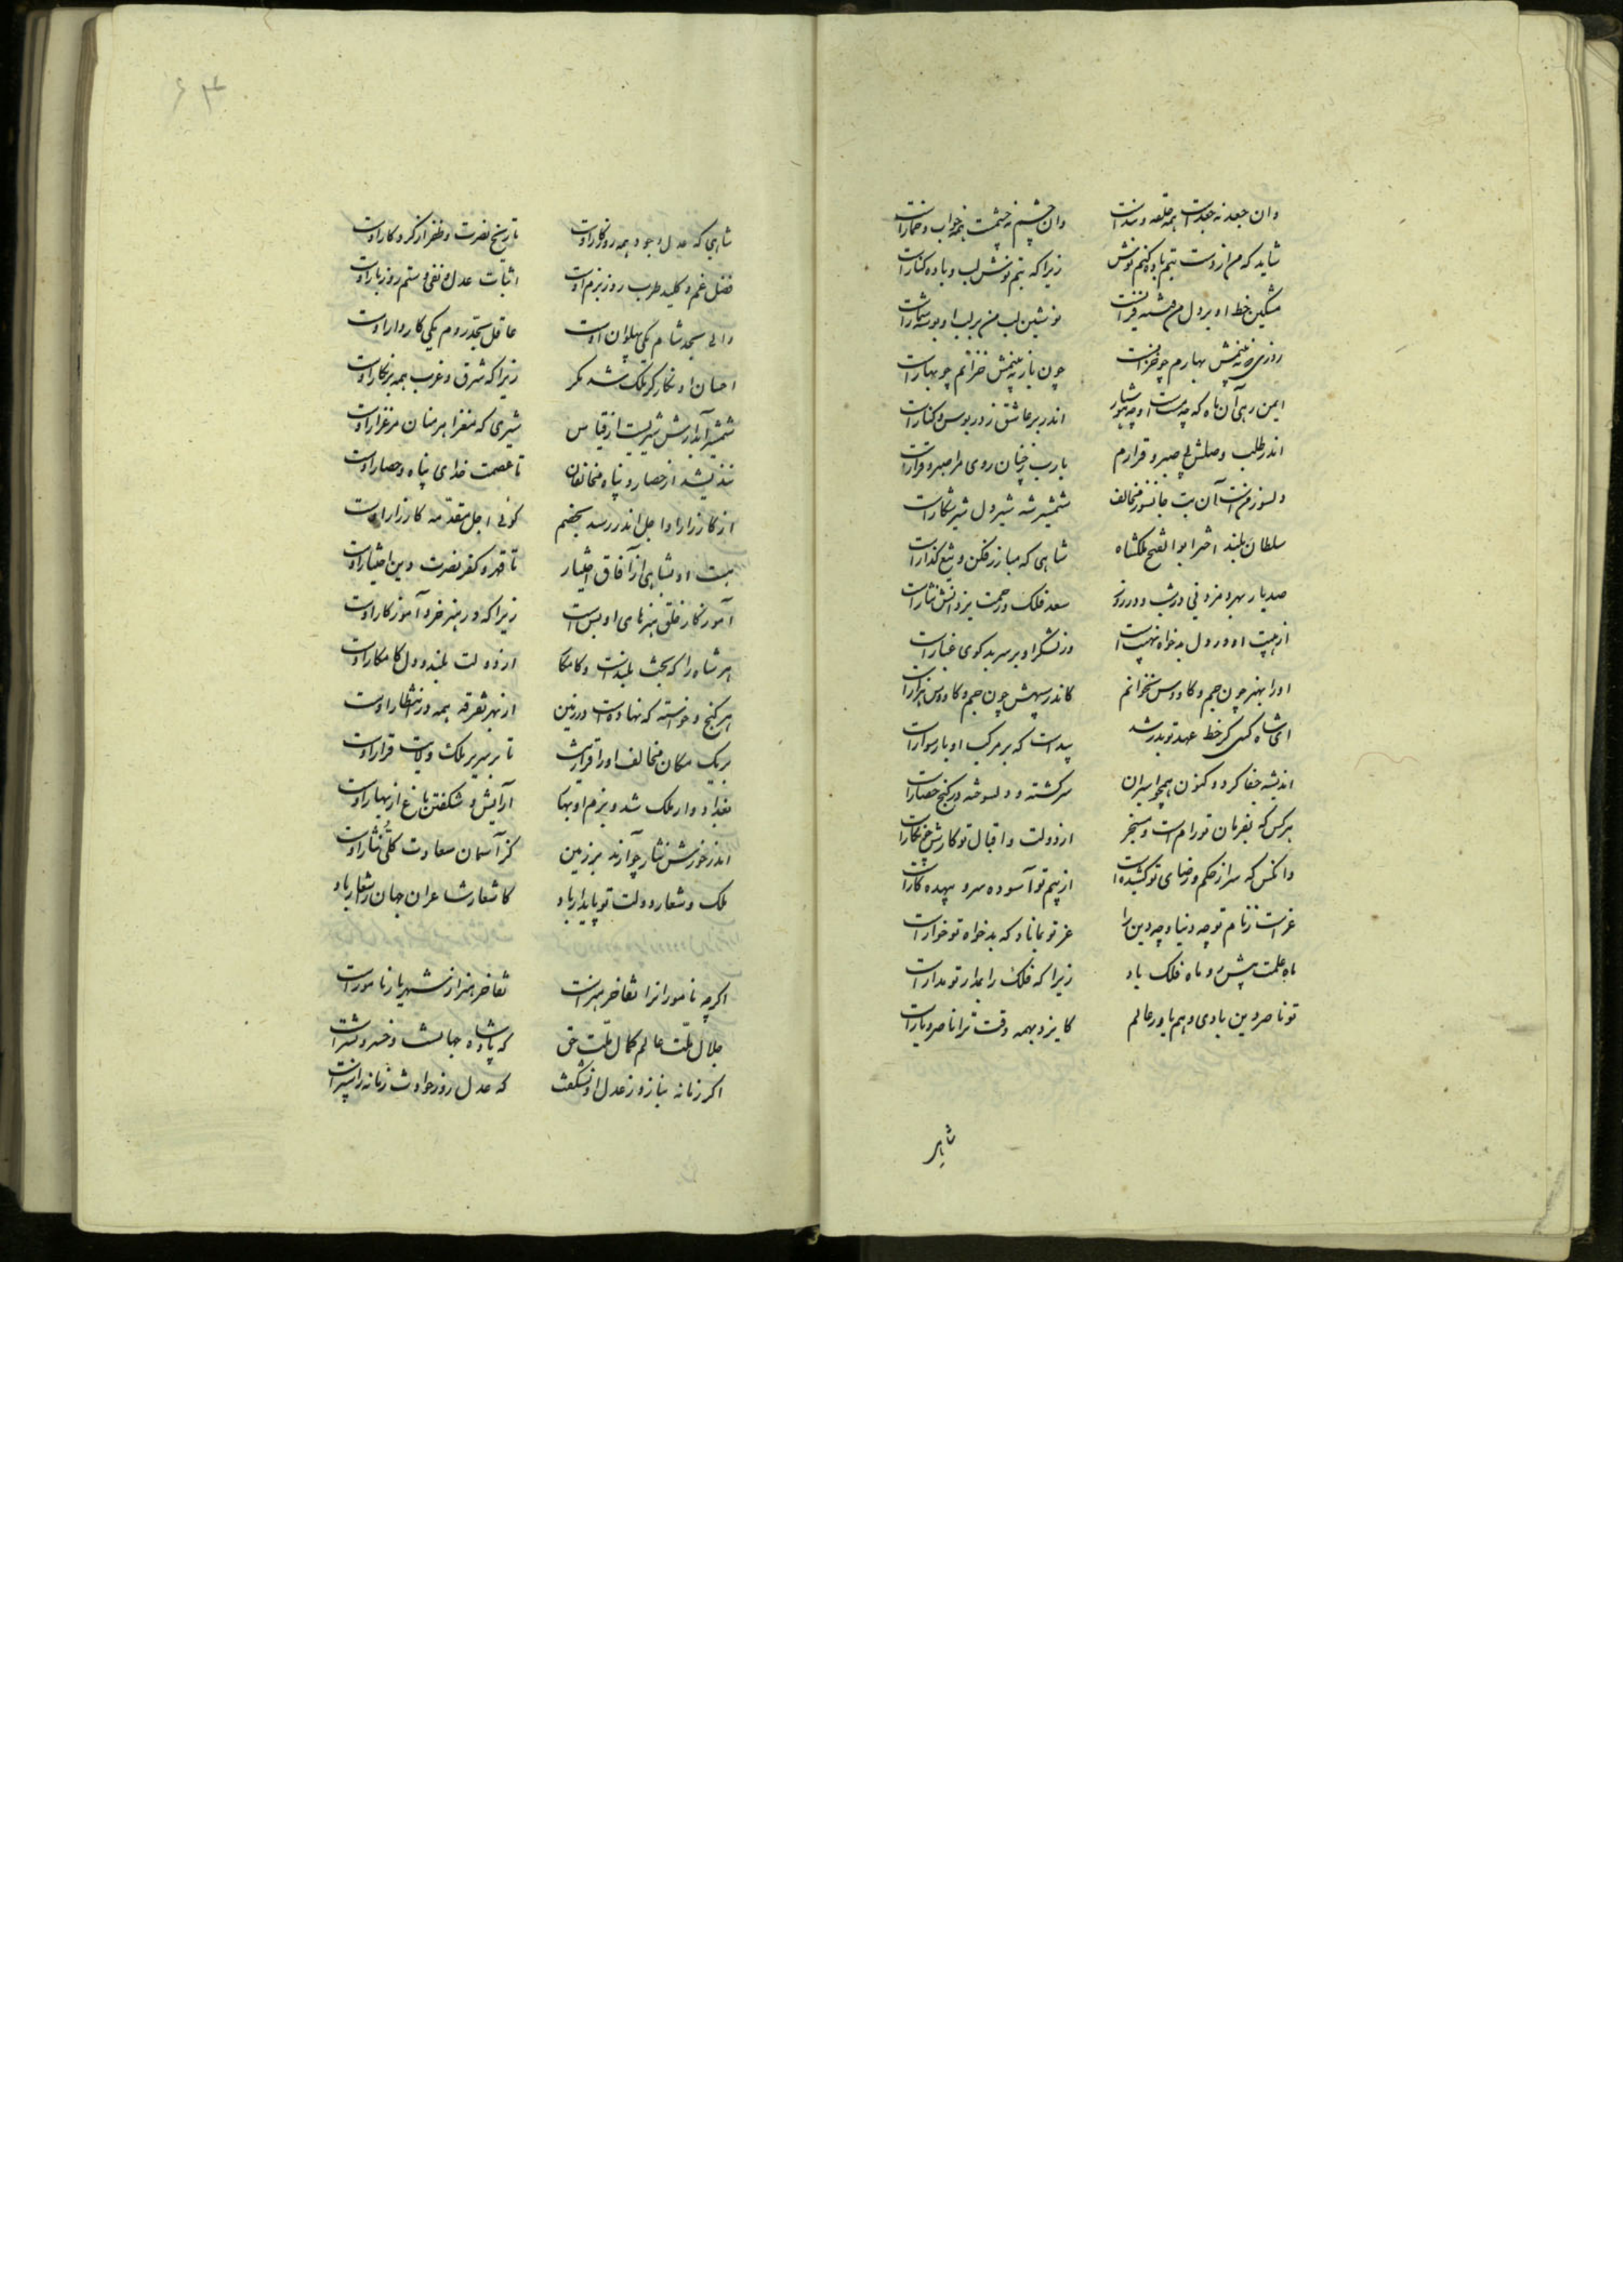 وان جعد نه جعدست همه حلقه و بندست وان چشم نه چشمست همه خواب و خمارست
شاید که من از دست بتم باده کنم نوش زیرا که بتم نوش لب و باده کنارست
مشکین خط او بر دل من فتنست
نوشین لب من بر لب او بوسه شمارست
روزی که نه بینمش بهارم چو خزانست چون باز به بینمش خزانم چو بهارست
ایمن رهی آن ماه که چه مست و چه هشیار اندر بر عاشق ز در بوس و کنارست
اندر طلب وصلش بی صبر و قرارم یارب ز چنان روی مرا صبر و قرارست
دلسوز منست آن بت جانسوز مخالف شمشیر شه شیر دل شیر شکارست
سلطان بلند اختر ابوالفتح ملکشاه شاهی که مبارز فکن و تیغ گذارست
صدبار بهر دم زدنی در شب و در روز سعد فلک و رحمت یزدانش نثارست
از هیبت او در دل بدخواه نهیبست وز لشکر او بر سر بدگوی غبارست
او را بهنر چون جم و کاوس نخوانم کاندر سپهش چون جم و کاوس هزارست
ای شاه کسی کز خط عهد تو بدر شد پیداست که بر مرکب ادبار سوارست
اندیشه خطا کرد و کنون همچو اسیران سرگشته و دلسوخته در کنج حصارست
هرکس که بفرمان تو رامست و مسخر از دولت و اقبال تو کارش چو نگارست
وانکس که سر از حکم و رضای تو کشیدست از بیم تو آسوده سرو بیهده کارست
عزست ز نام تو چه دنیا و چه دین را عز تو بماناد که بدخواه تو خوارست
ماه علمت پیش رو ماه فلک باد زیرا که فلک را بمدار تو مدارست
تو ناصر دین بادی و هم یاور عالم کایزد بهمه وقت ترا ناصر و یارست
شاهی که عدل و جود همه روزگار اوست تاریخ نصرت و ظفر از کردگار اوست
قفل غم و کلید طرب روز بزم اوست اثبات عدل و نفی ستم روز بار اوست
والی بحد شام یکی پهلوان اوست عاقل بحد روم یکی کاردار اوست
احسان او نگارگر ملک شد مگر زیرا که شرق و غرب همه پرنگار اوست
شمشیر آبدارش شیریست از قیاس شیری که مغز اهرمنان مرغزار اوست
نندیشد از حصار و پناه مخالفان تا عصمت خدای پناه و حصار اوست
از کارزار او اجل اندر رسد بخصم گوئی اجل مقدمه کارزار اوست
بست او بشاهی از آفاق اختیار تا قهر کفر و نصرت دین اختیار اوست
آموزگار خلق هنرهای او بس است زیرا که در هنر خرد آموزگار اوست
هر شاه را که بخت بلندست و کامکار از دولت بلند و دل کامکار اوست
هر گنج و خواسته که نهادست در زمین از بهر تفرقه همه در انتظار اوست
بر یک مکان مخالف او را قرار نیست تا بر سریر ملک و ولایت قرار اوست
بغداد دار ملک شد و بزم او بهار آرایش و شکفتن باغ از بهار اوست
اندر خورش نثار چو آرند بر زمین کز آسمان سعادت کلی نثار اوست
ملک و شعار دولت تو پایدار باد کاشعار شاعران جهان را شعار باد
اگرچه نامورانرا تفاخر هنرست تفاخر هنر از شهریار نامورست
جلال ملت عالم کمال ملت حق که پادشاه جهانست و خسرو بشرست
اگر زمانه بنازد ز عدل او نه شگفت که عدل روز حوادث زمانه را سپرست